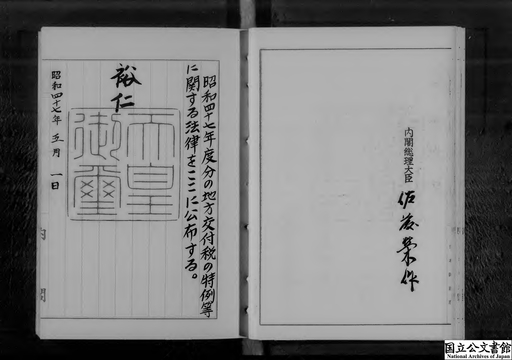 昭和四十七年度分の地方交付税の特例等
に関する法律をここに公布する。
裕仁
天皇
御璽
昭和四十七年五月一日
内閣総理大臣 佐藤榮作
国立公文書館
National Archives of Japan